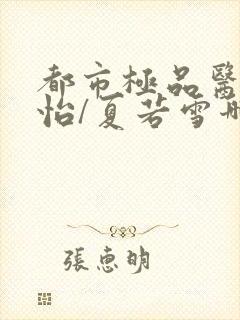 都市極品醫
怡/夏若雪
張惠明